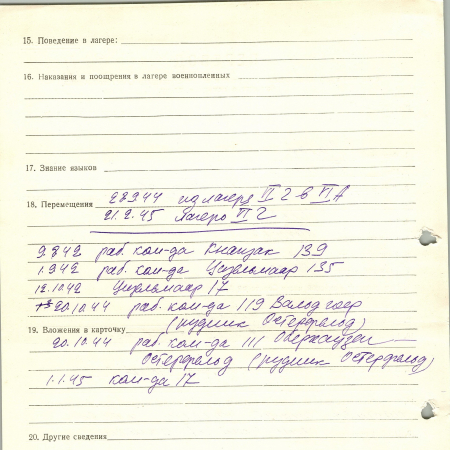 15. Поведение в лагере:
16. Наказания и поощрения в лагере военнопленных
17. Знание языков
18. Перемещения 28.9.44 из лагеря II G в VI A
21.2.45 лагерь VI G
9.8.42 раб. ком-да Кнапзак 139
1.9.42 раб. ком-да 135
12.10.42 17
20.10.44 раб. ком-да 119
(рудник Остерфельд)
19. Вложения в карточку
20.10.44 раб. ком-да 111 Оберхаузен
Остерфельд (рудник Остерфельд)
1.1.45 ком-да 17
20. Другие сведения